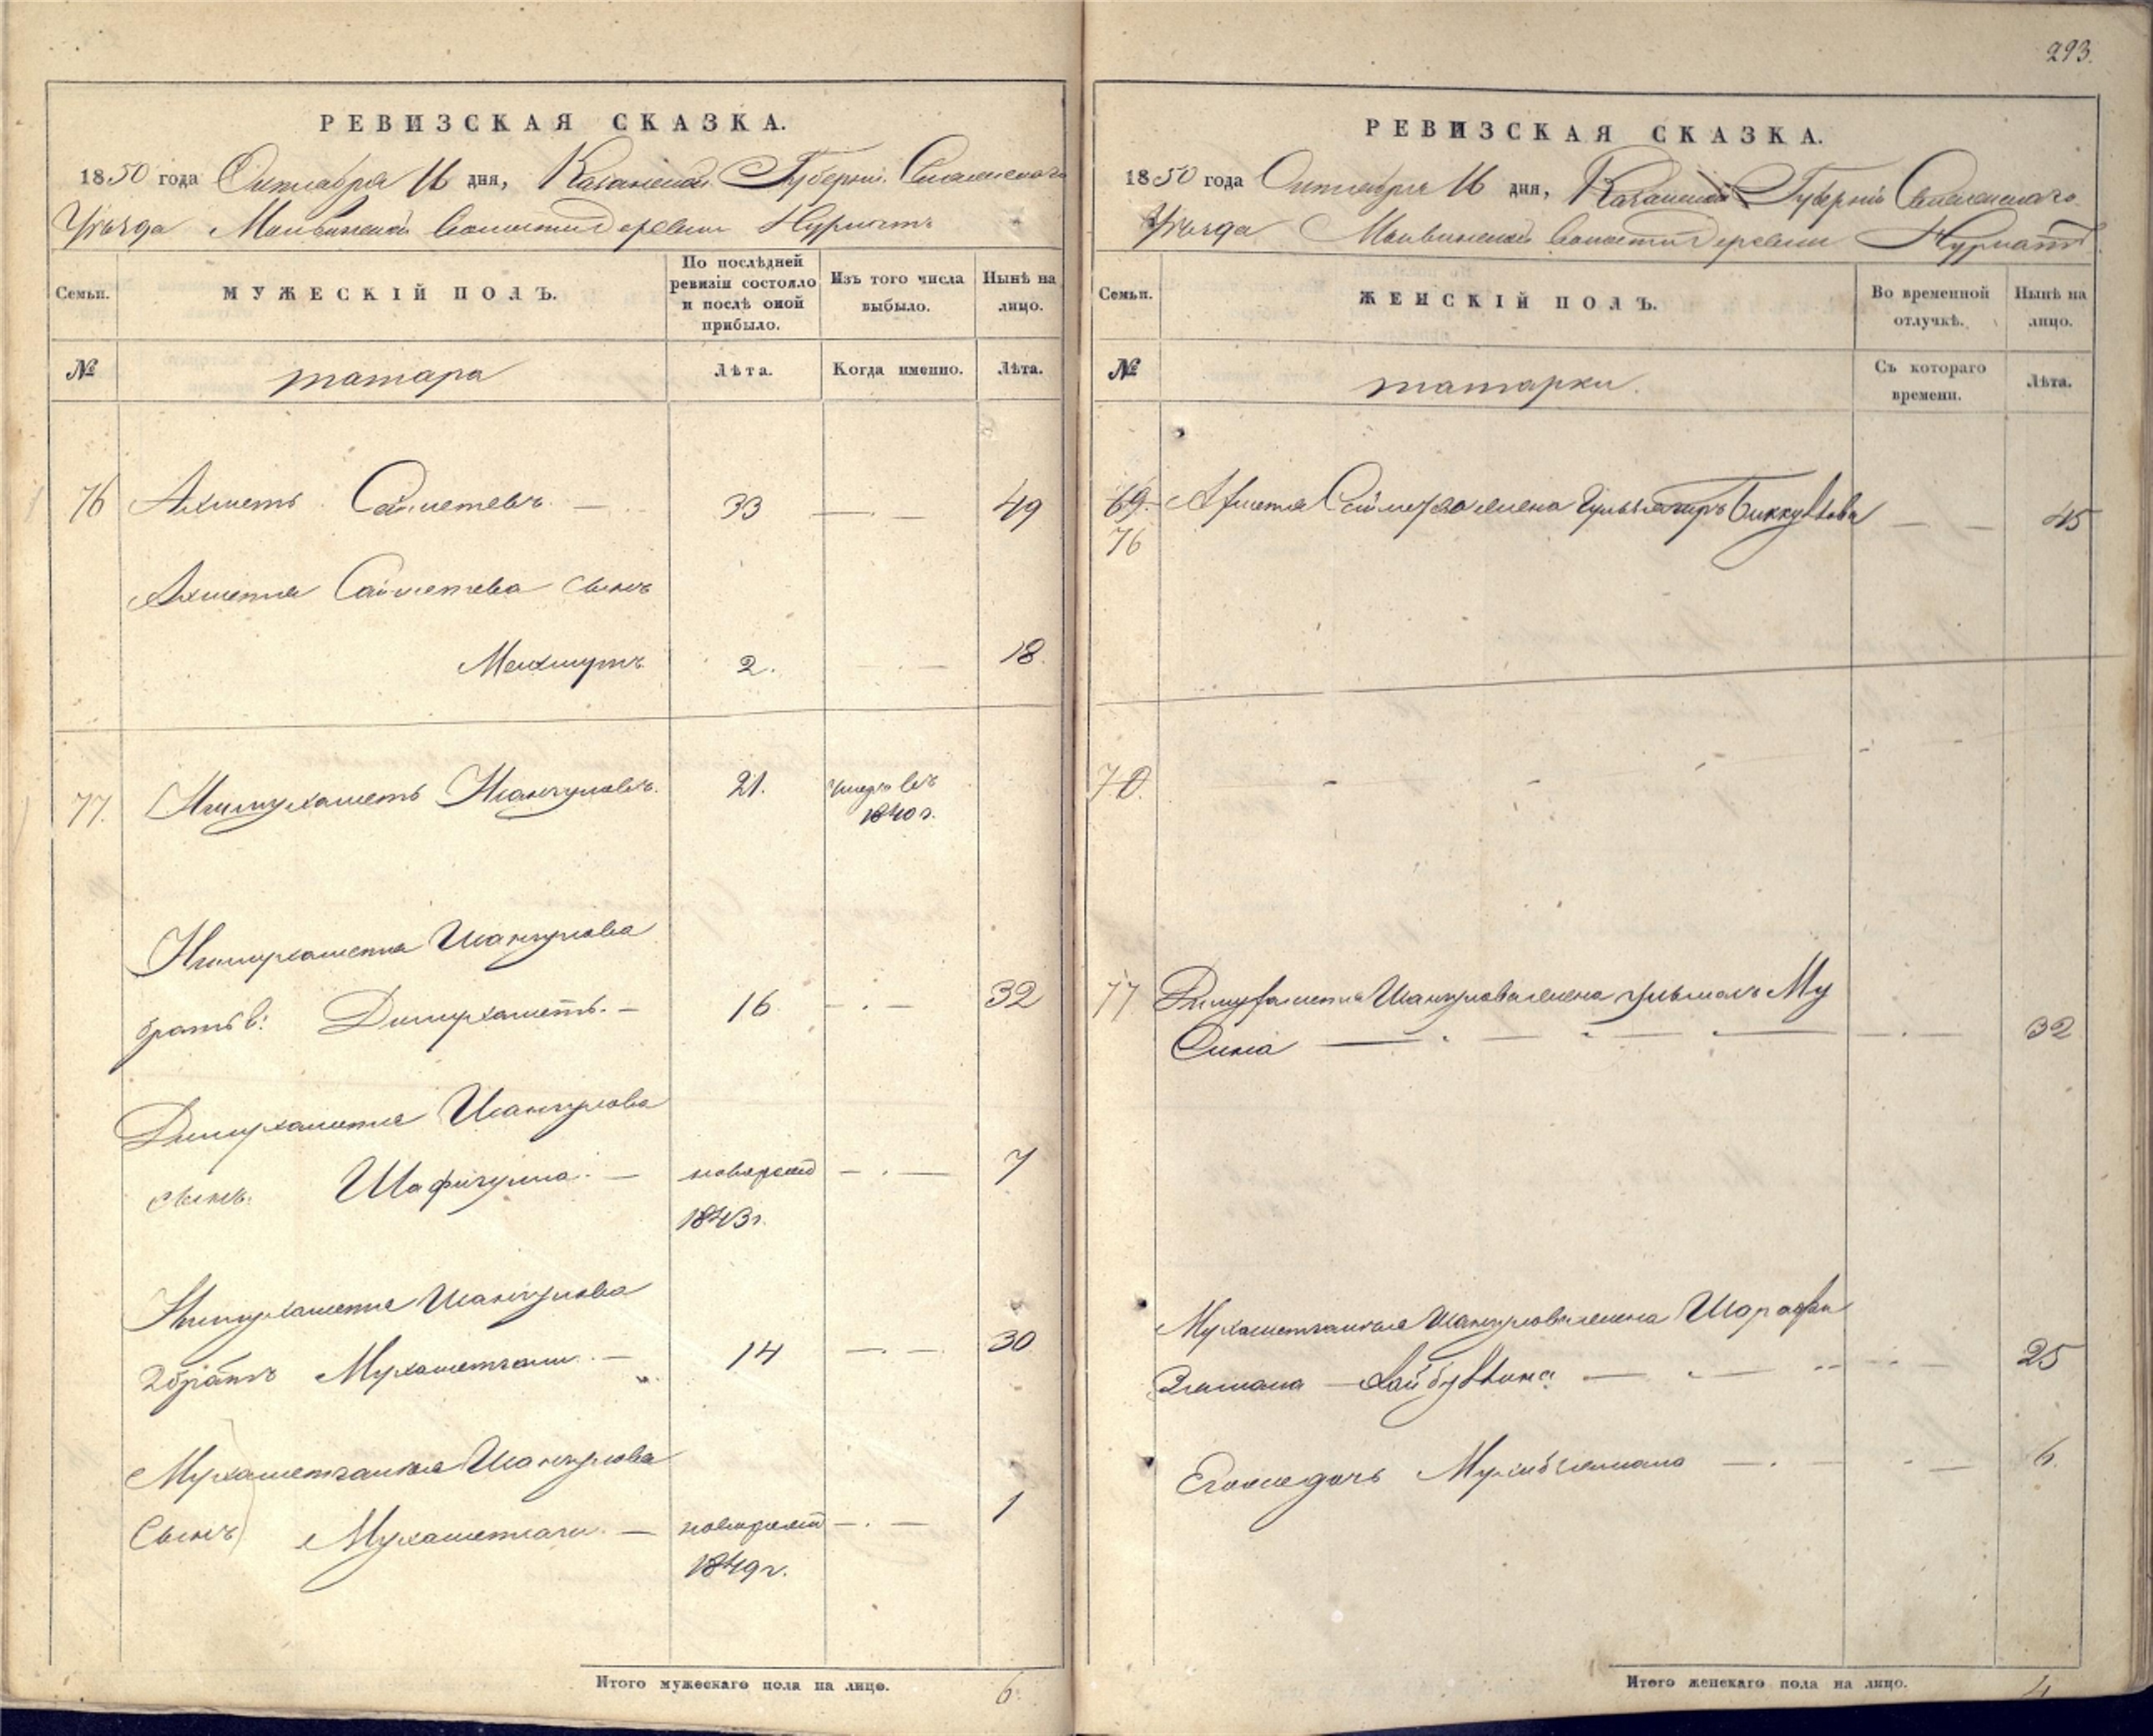 293.
РЕВИЗСКАЯ СКАЗКА.
1850 года Октября 16 дня, Казанской Губернии Спасскаго
Уѣзда волости Деревни Нурлатъ
Семьи.
МУЖЕСКІЙ ПОЛЪ.
По послѣдней ревизіи состояло и послѣ оной прибыло.
Изъ того числа выбыло.
Нынѣ на лицо.
№
татара
Лѣта.
Когда именно.
Лѣта.
76 Ахметъ Саиметевъ — 33 — 49
Ахметя Саиметева сынъ
Махмутъ 2. — 18.
77. Нигмухаметъ Ишангуловъ. 21. умеръ въ
1840 г.
Ишангулова
братъ в: Димухаметъ. — 16 — 32
Димухаметя Ишангулова
сынъ. Шафигулла — новорожд — 7
1843 г.
Ишангулова
2 братъ Мухаметгали — 14 — 30
Мухаметгалия Ишангулова
Сынъ — новорожд — 1
1849 г.
Итого мужескаго пола на лицо. 6.
РЕВИЗСКАЯ СКАЗКА.
1850 года Октября 16 дня, Казанской Губерніи Спасскаго
Уѣзда волости Деревни Нурлатъ
Семьи.
ЖЕНСКІЙ ПОЛЪ.
Во временной отлучкѣ.
Нынѣ на лицо.
№
татарки.
Съ котораго времени.
Лѣта.
69
76 Ахметя жена Биккулова — 45
70.
77 Димухаметя Ишангулова жена Му
сина — 32
Мухаметгалия Ишангулова жена
— 25
Егоже дочь — 6.
Итого женскаго пола на лицо. 4